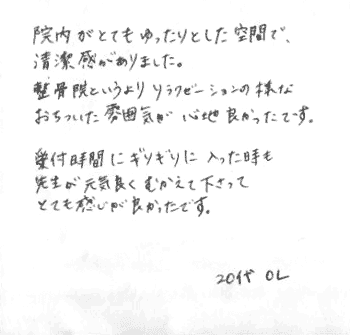 院内がとてもゆったりとした空間で、
清潔感がありました。
整骨院というより リラクゼーションの様な
おちついた雰囲気が 心地良かったです。
受付時間にギリギリに入った時も
先生が元気良くむかえて下さって
とても感じが良かったです。
20代 OL